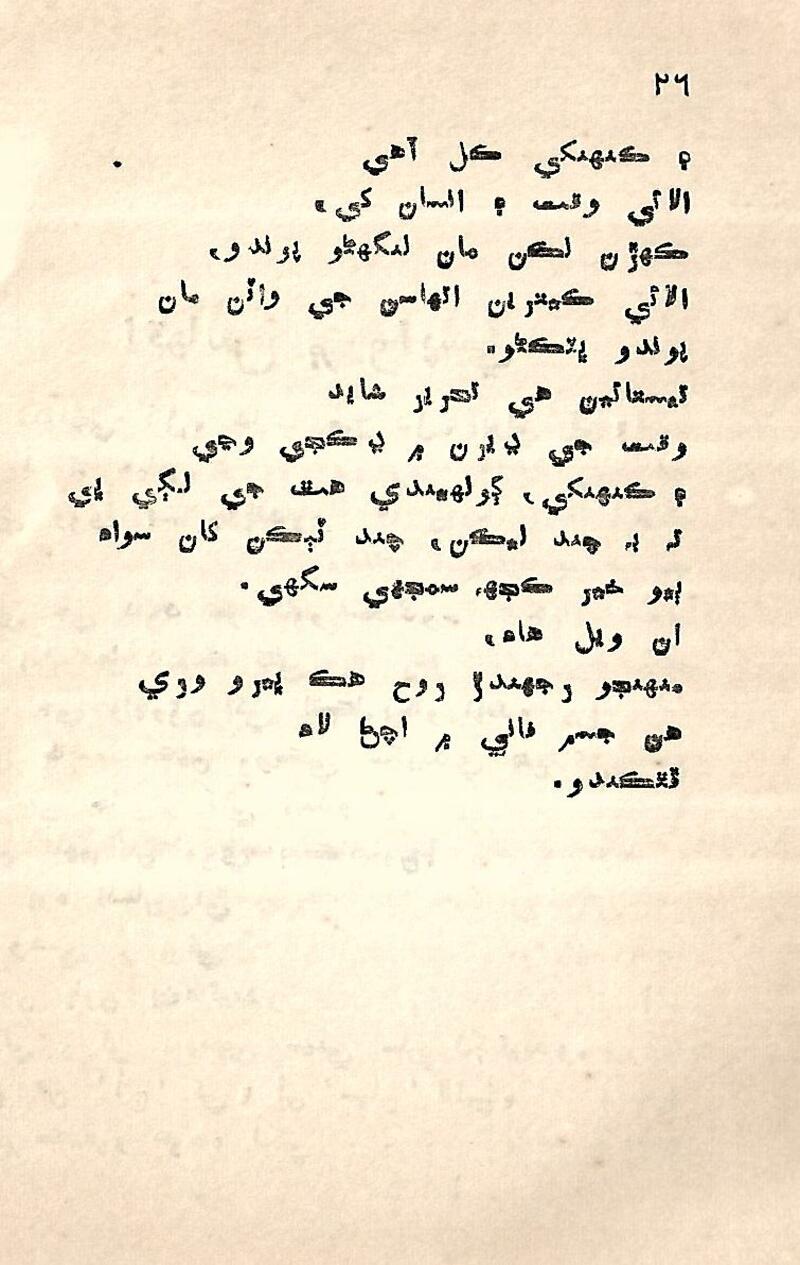 ٢٦
۽ ڪنهنکي ڪل آهي
الائي وقت ۽ انسان کي،
ڪهڙن لڪن مان لنگهڻو پوندو،
الائي ڪيترين اتهاسن جي واٽن مان
پوندو ڀٽڪڻو.
تيستائين هي تحرير شايد
وقت جي ڍيرن ۾ ڍڪجي وڃي
۽ ڪنهنکي، ڳولهيندي هٿ جي لڳي پي
تہ بہ چند ليڪن، چند ٽٻڪن کان سواءِ
ٻيو خير ڪجهہ سمجهي سگهي.
ان ويل هاءِ،
منهنجو رجهندڙ روح هڪ ڀيرو وري
هن جسم فاني ۾ اچڻ لاءِ
ڦٿڪندو.